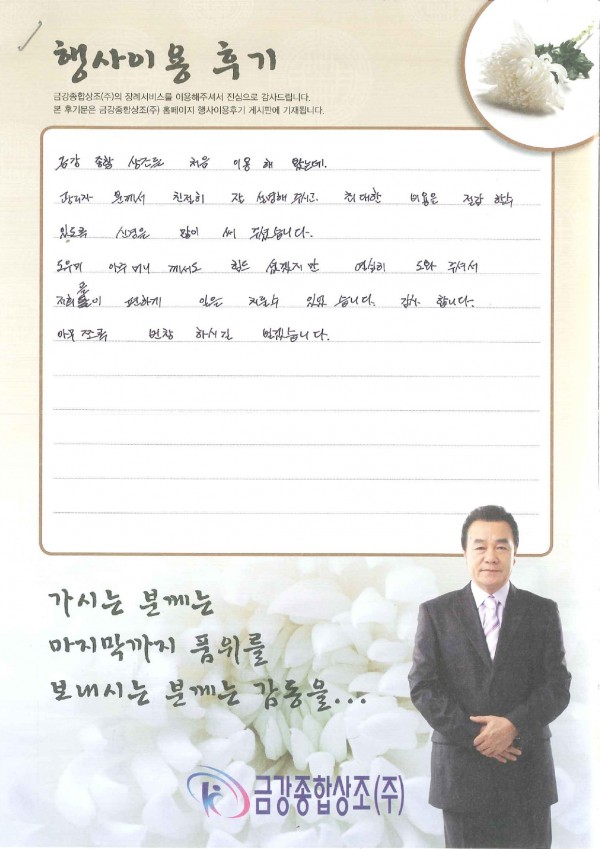 행사이용 후기
금강종합상조(주)의 장례서비스를 이용해주셔서 진심으로 감사드립니다.
본 후기분은 금강종합상조(주) 홈페이지 행사이용후기 게시판에 기재됩니다.
금강 종합 상조를 처음 이용 해 봤는데.
관리자 분께서 친절히 잘 설명해 주시고. 최대한 비용은 절감 할수
있도록 신경을 많이 써 주셨습니다.
도우미 아주머니 께서도 힘드 셨겠지만 열심히 도와 주셔서
저희들이 편하게 일을 치를수 있었 습니다. 감사 합니다.
아무쪼록 번창 하시길 빌겠습니다.
가시는 분께는
마지막까지 품위를
보내시는 분께는 감동을...
금강종합상조(주)